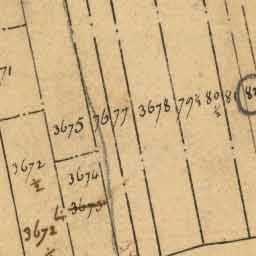 71
3675 76 77 3678 79½ 80½ 81
3672
½
3674
3673
3672